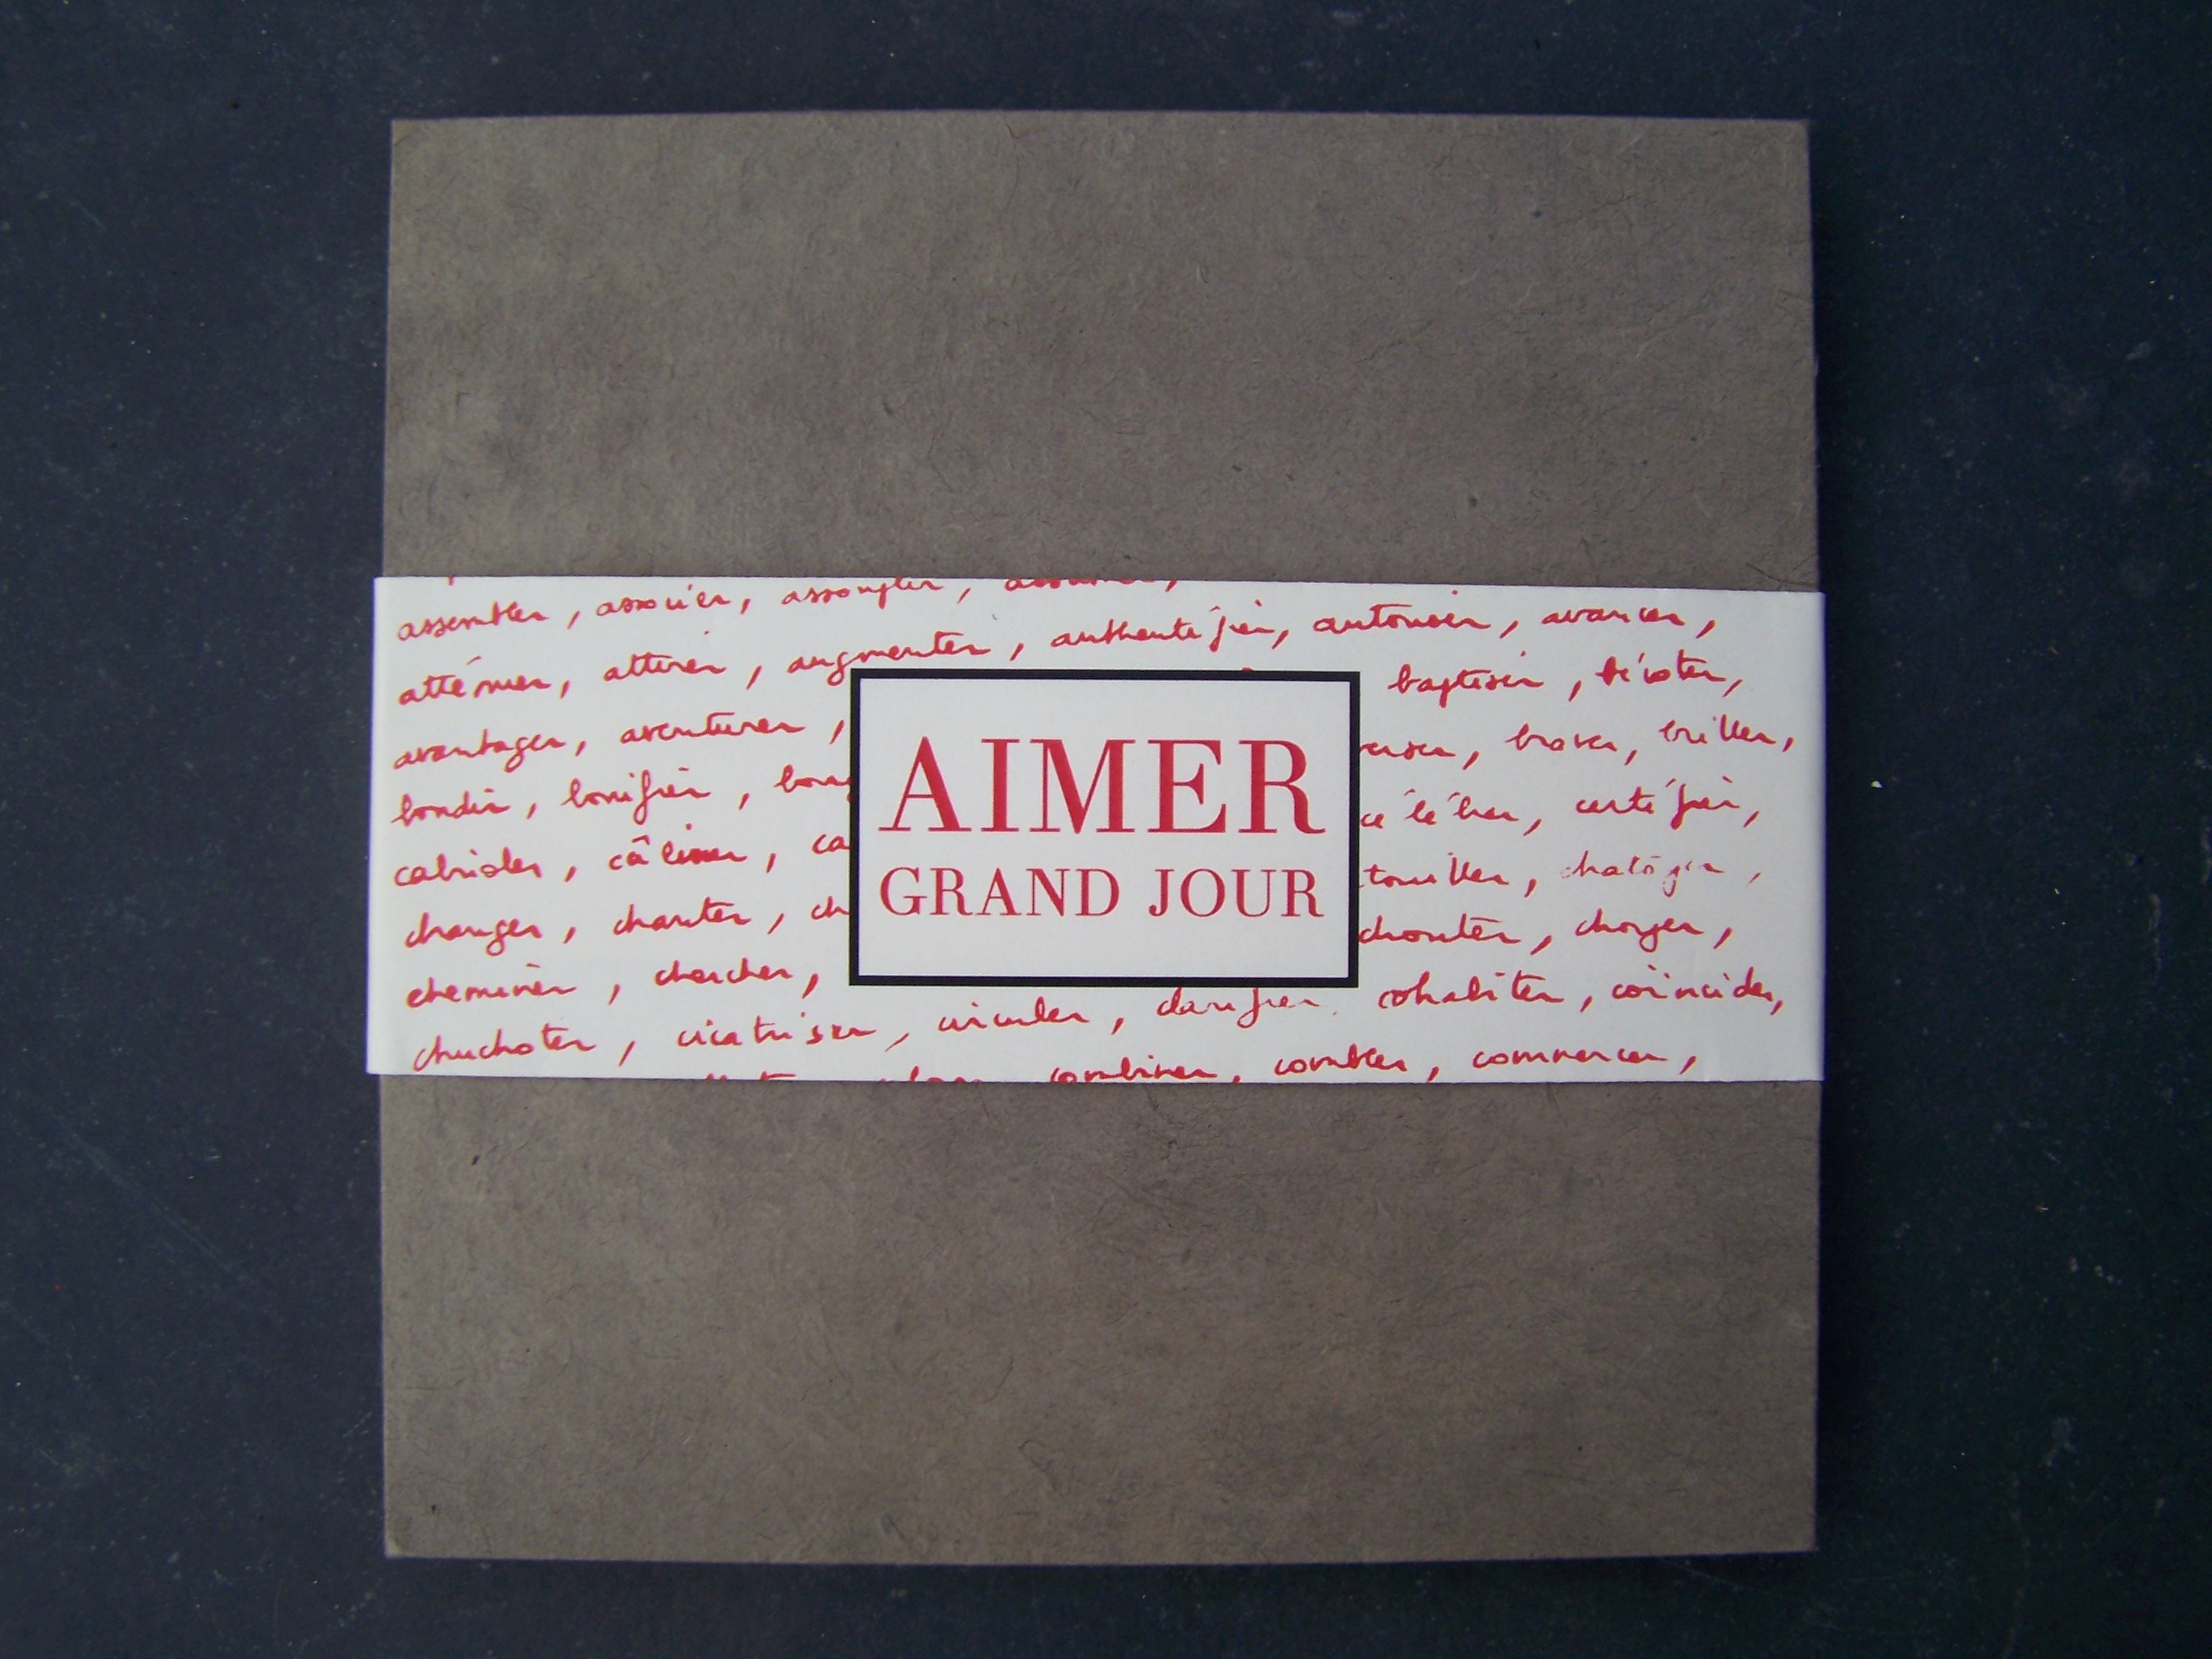 assembler, associer, assouplir, assumer,
atténuer, attirer, augmenter, authentifier, autoriser, avancer,
avantager, aventurer, baptiser, bécoter,
bondir, bonifier, braver, briller,
cabrioler, câliner, célébrer, certifier,
changer, chanter, chatoyer,
cheminer, chercher, choyer,
chuchoter, cicatriser, circuler, clarifier, cohabiter, coïncider,
combiner, combler, commencer,
AIMER
GRAND JOUR